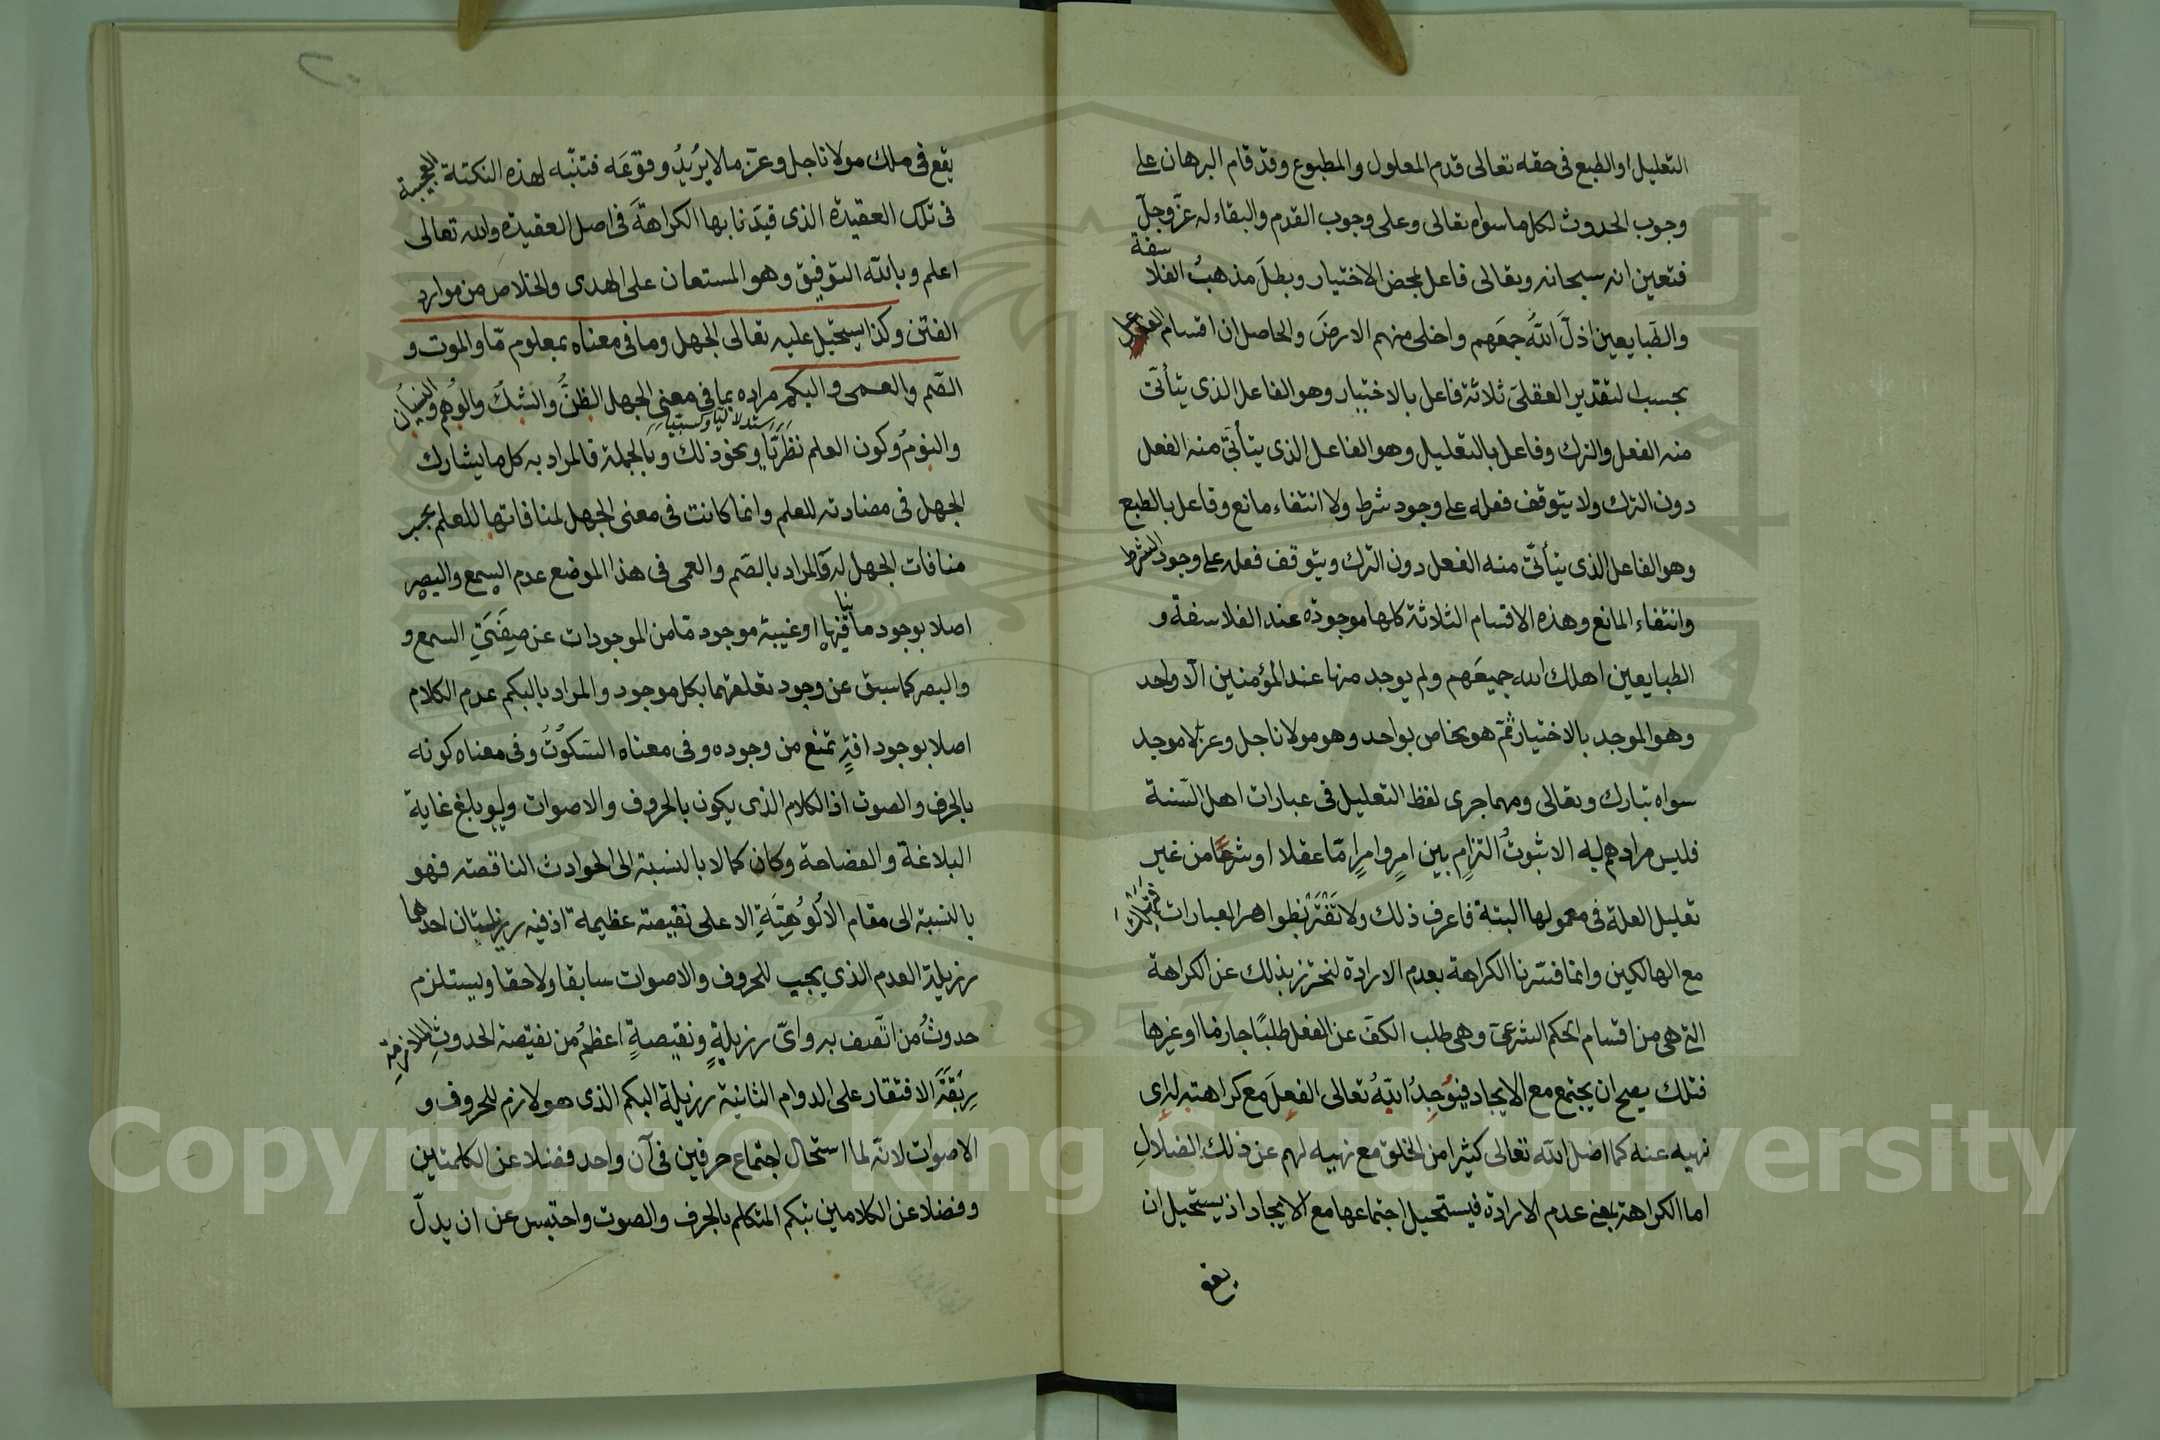 التعليل او الطبع فى حقه تعالى قدم المعلول والمطبوع وقد قام البرهان على
وجوب الحدوث لكل ما سواه تعالى وعلى وجوب القدم والبقاء له عزّ وجلّ
فتعين انه سبحانه وتعالى فاعل بمحض الاختيار وبطل مذهبُ الفلاسفة
والطبايعين اذلّ اللهُ جمعَهم واخلى منهم الارضَ والحاصل ان اقسام الفاعل
بحسب التقدير العقلىّ ثلاثة فاعل بالاختيار وهو الفاعل الذى يتأتّى
منه الفعل والترك وفاعل بالتعليل وهو الفاعل الذى يتأتّى منه الفعل
دون الترك ولا يتوقف فعله على وجود شرط ولا انتفاء مانع وفاعل بالطبع
وهو الفاعل الذى يتأتّى منه الفعل دون الترك ويتوقف فعله على وجود الشرط
وانتفاء المانع وهذه الاقسام الثلاثة كلها موجودة عند الفلاسفة و
الطبايعين اهلك الله جميعَهم ولم يوجد منها عند المؤمنين الّا واحد
وهو الموجد بالاختيار ثمّ هو خاص بواحد وهو مولانا جل وعزّ لا موجد
سواه تبارك وتعالى ومهما جرى لفظ التعليل فى عبارات اهل السّنة
فليس مرادهم به الا ثبوتُ التزامٍ بين امرٍ وامرٍ امّا عقلا او شرعًا من غير
تعليل العلة فى معمولها البتة فاعرف ذلك ولا تَغْتَرّ بظواهر العبارات فتهلك
مع الهالكين وانما فسّرنا الكراهة بعدم الارادة لنحترز بذلك عن الكراهة
التى هى من اقسام الحكم الشرعىّ وهى طلب الكفّ عن الفعل طلبًا جازما او غيرها
فتلك يصح ان يجتمع مع الايجاد فيُوجِدُ اللهُ تعالى الفعلَ مع كراهته له اى
نهيه عنه كما اضل الله تعالى كثيرا من الخلق مع نهيه لهم عن ذلك الضلال
اما الكراهة بمعنى عدم الارادة فيستحيل اجتماعها مع الايجاد اذ يستحيل ان
يقع
يقع فى ملك مولانا جل وعزّ ما لا يُريدُ وقوعَه فتنبّه لهذه النكتة العجيبة
فى تلك العقيدة الذى قيدنا بها الكراهةَ فى اصل العقيدة والله تعالى
اعلم وبالله التوفيق وهو المستعان على الهدى والخلاص من موارد
الفتن وكذا يستحيل عليه تعالى الجهل وما فى معناه بمعلوم مّا والموت و
الصّم والعمى والبكم مراده بما فى معنى الجهل الظنُّ والشكُّ والوهم والنسيان
والنومُ وكون العلم نظريّا ونحو ذلك وبالجملة فالمراد به كل ما يشارك
الجهل فى مضادته للعلم وانما كانت فى معنى الجهل لمنافاتها للعلم
منافات الجهل له والمراد بالصّم والعمى فى هذا الموضع عدم السمع والبصر
اصلا بوجود ما ينافيها او غيبة موجود مّا من الموجودات عن صِفَتَىِ السمع و
والبصر كما سبق عن وجود تعلقهما بكل موجود والمراد بالبكم عدم الكلام
اصلا بوجود افةٍ تمنع من وجوده وفى معناه السّكوُتُ وفى معناه كونه
بالحرف والصوت اذ الكلام الذى يكون بالحروف والاصوات ولو بلغ غاية
البلاغة والفصاحة وكان كمالا بالنسبة الى الحوادث الناقصة فهو
بالنسبة الى مقام الاُلُوهِيّةِ الاعلى نقيصة عظيمة اذ فيه رزيلتان احدهما
رزيلة العدم الذى يجب للحروف والاصوات سابقا ولاحقا ويستلزم
حدوثُ من اتّصف به واىّ رزيلةٍ ونقيصةٍ اعظمُ من نقيصة الحدوثِ الملازمةِ
رِبقَةَ الافتقار على الدوام الثانية رزيلة البكم الذى هو لازم للحروف و
الاصوات لانّه لما استحال اجتماع حرفين فى آن واحد فضلا عن الكلمتين
وفضلا عن الكلامين تبكم المتكلم بالحرف والصوت واحتبس عن ان يدلّ
Copyright © King Saud University
1957